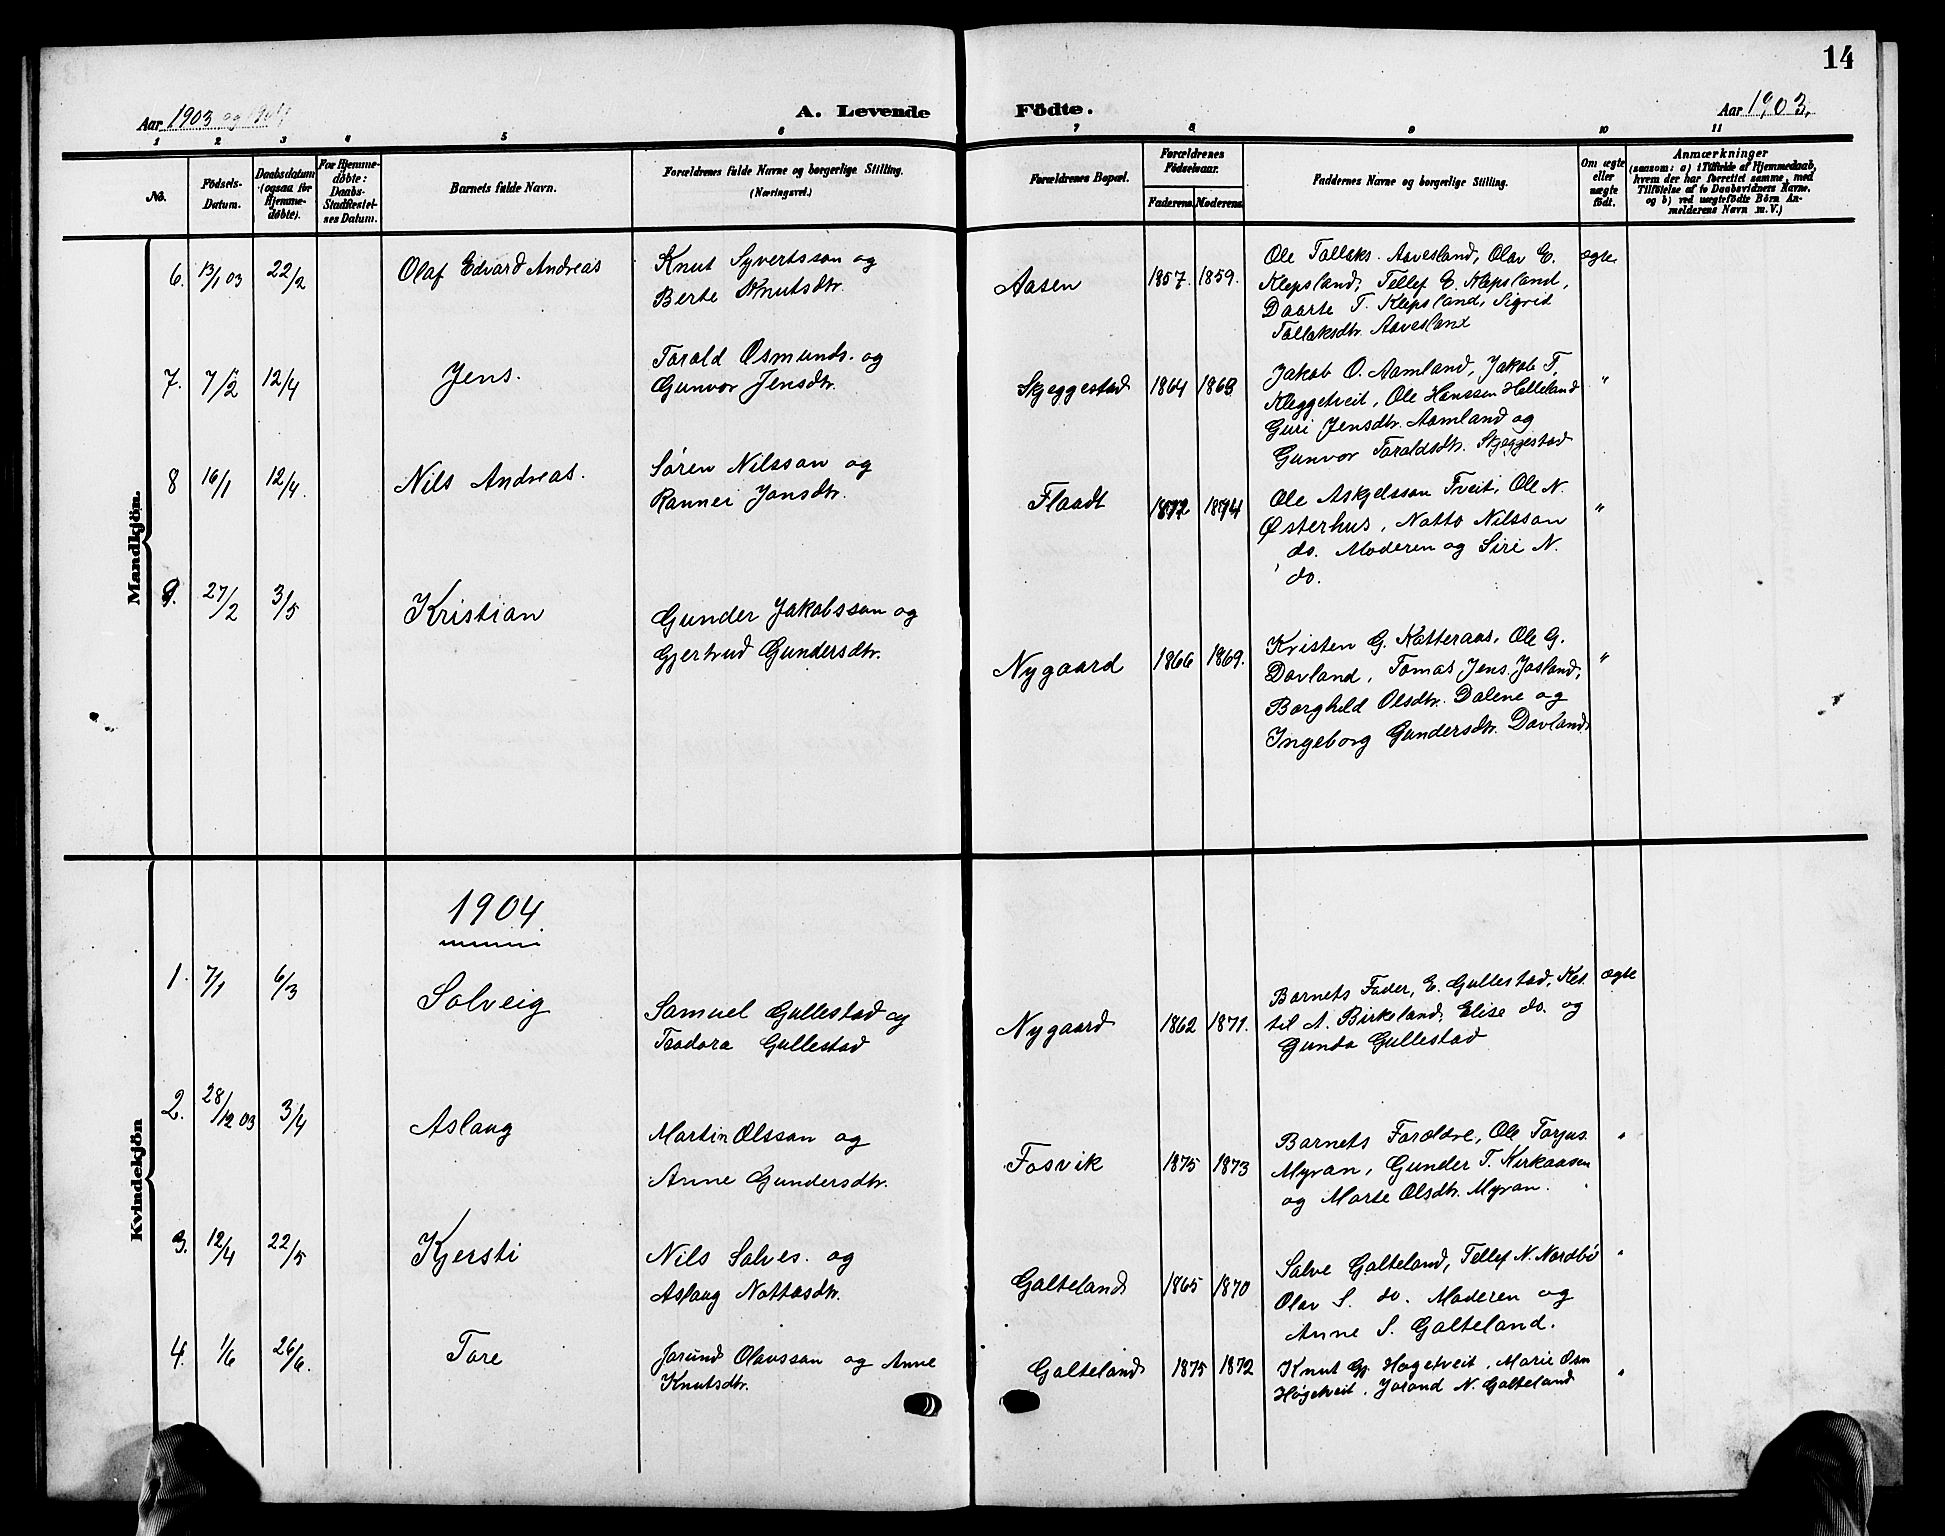 14
Aar 1903 og 1904
A. Levende Födte.
Aar 1903.
1 2 3 4 5 6 7 8 9 10 11
No.
Födsels-Datum.
Daabsdatum (ogsaa for Hjemmedøbte).
For Hjemmedøbte: Daabs-Stadfæstelses Datum.
Barnets fulde Navn.
Forældrenes fulde Navne og borgerlige Stilling.
(Næringsvei.)
Forældrenes Bopæl.
Forældrenes Födselsaar.
Faderens. Moderens.
Faddernes Navne og borgerlige Stilling.
Om ægte eller uægte födt.
Anmærkninger
(saasom: a) i Tilfælde af Hjemmedaab,
hvem der har forrettet samme, med
Tilföielse af to Daabsvidners Navne.
og b) ved uægtefödte Börn Anmelderens Navn m. V.)
Mandkjön.
6. 13/1 03 22/2 Olaf Edvard Andreas
Knut Syvertsson og
Berte Knutsdtr.
Aasen 1857. 1859.
Ole Tallaks. Aavesland, Olav E.
Klepsland, Tellef E. Klepsland,
Daarte T. Klepsland, Sigrid
Tallaksdtr. Aavesland
ægte
7. 7/2 12/4 Jens.
Tarald Osmunds. og
Gunvor Jensdtr.
Skjeggestad 1864 1868
Jakob O. Aamland, Jakob T.
Kleggetveit, Ole Hanssen Helleland
Guri Jensdtr. Aamland og
Gunvor Taraldsdtr. Skjeggestad
"
8 16/1 12/4. Nils Andreas.
Sören Nilsson og
Rannei Jonsdtr.
Flaadt 1872 1874
Ole Askjelsson Tveit, Ole N.
Østerhus, Notto Nilsson
do. Moderen og Siri N.
do.
"
9. 27/2 3/5 Kristian
Gunder Jakobsson og
Gjertrud Gundersdtr.
Nygaard 1866 1869.
Kristen G. Katteraas, Ole G.
Dovland, Tomas Jens. Josland,
Borghild Olsdtr. Dalene og
Ingeborg Gundersdtr. Dovland
"
Kvindekjön
1904.
1. 7/1 6/3 Solveig
Samuel Gullestad og
Teodora Gullestad
Nygaard 1862 1871.
Barnets Fader, E. Gullestad, Ket-
til A. Birkeland, Elise do. og
Gunda Gullestad
ægte
2. 28/12 03 3/4 Aslaug
Martin Olsson og
Anne Gundersdtr.
Fosvik 1875 1873
Barnets Forældre, Ole Torjus.
Myran, Gunder T. Kirkaasen
og Marte Olsdtr. Myran.
"
3. 12/4 22/5 Kjersti
Nils Salves. og
Aslaug Nottosdtr.
Galteland 1865 1870
Salve Galteland, Tellef N. Nordbö
Olav S. do. Moderen og
Anne S. Galteland.
"
4. 1/6 26/6. Tore
Jorund Olavsson og Anne
Knutsdtr.
Galteland 1875 1872
Knut Gj. Hagetveit, Marie Osm
Högetveit, Jorand N. Galteland
"